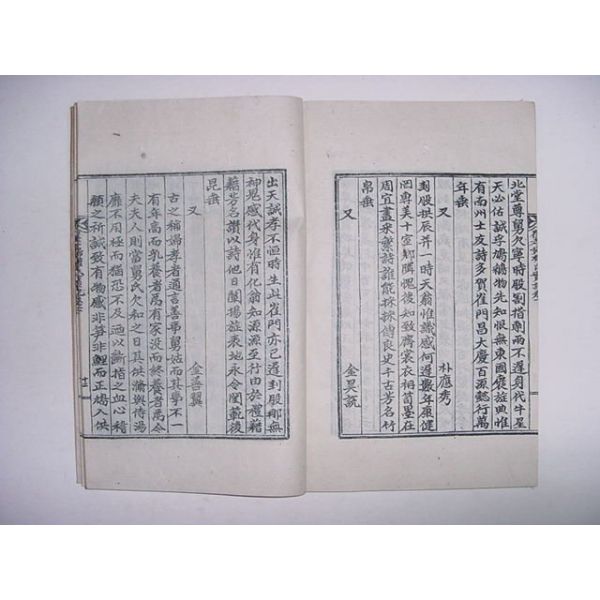 北堂尊舅欠寧時股割指剮而不遲身代牛星
天必佑誠孚鴆物先知恨無東國褒旌典惟
有南州士友詩多賀崔門昌大慶百源懿行萬
年垂
又 朴應秀
刲股拱辰并一時天翁惟識感何遲數年康健
回專美十室鄉隣愧後知致齋裳衣相苜墨在
周宜畫采蘩詩誰能採採傳良史千古芳名竹
帛垂
又 金昊說
出天誠孝不恒時生此崔門亦已遲刲股那無
神鬼感代身惟有化翁知源源至行由於禮籍
籍芳名讚以詩他日闡揚旌表地永令閨範後
昆垂
又 金善翼
古之稱揚孝者通言善事舅姑而其學不一
有年高而乳養者爲有家沒而終養者爲今
夫夫人則當舅氏欠和之日其供滫與侍湯
靡不用極而猶恐不及迺以斷指之血心稽
顙之所誠致有物感非笋非鯉而正鴆入供